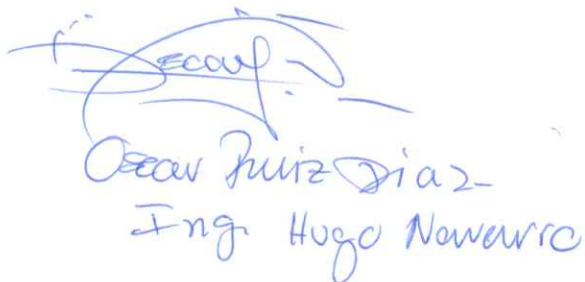 Oscar Ruiz Diaz
Ing. Hugo Navarro